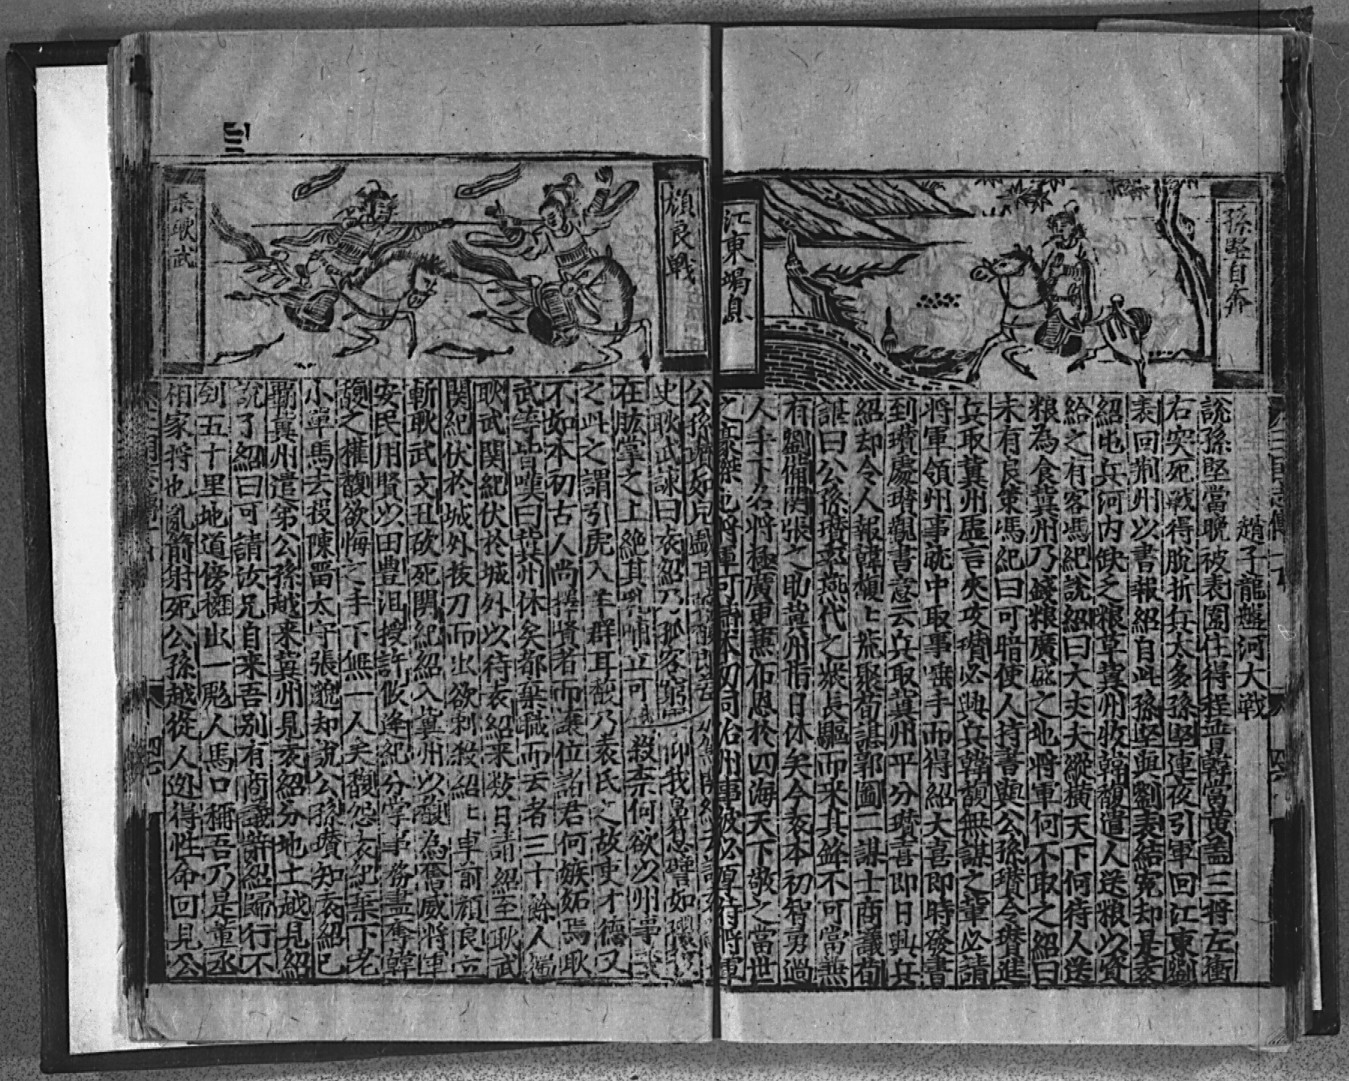 孫堅自奔
江東竭息
趙子龍盤河大戰
說孫堅當晚被表圍住得程普韓當黃蓋三將左衝
右突死戰得脫折兵太多孫堅連夜引軍回江東劉
表回荆州以書報紹自此孫堅與劉表結冤却是袁
紹屯兵河內缺乏粮草冀州牧韓馥遣人送粮以資
給之有客馮紀說紹曰大丈夫縱橫天下何待人送
粮為食冀州乃錢粮廣盛之地將軍何不取之紹曰
未有良策馮紀曰可暗使人持書與公孫瓚令瓚進
兵取冀州虛言夾攻瓚必興兵韓馥無謀之輩必請
將軍領州事就中取事垂手而得紹大喜即時發書
到瓚處瓚觀書意云共取冀州平分瓚喜即日興兵
紹却令人報韓馥馥荒聚荀諶郭圖二謀士商議荀
諶曰公孫瓚率燕代之衆長驅而來其鋒不可當兼
有劉備関張之助冀州指日休矣今袁本初智勇過
人手下名將極廣更兼布恩於四海天下敬之當世
之豪傑也將軍可請本初同治州事彼必厚待將軍
顏良戰
袁耿武
史耿武諫曰袁紹乃孤客窮 仰我鼻息譬如嬰
在肱掌之上絕其乳哺立可 殺柰何欲以州事
之此之謂引虎入羊群耳馥乃袁氏之故吏才德又
不如本初古人尚擇賢者而讓位諸君何嫉妬焉耿
武等皆嘆曰冀州休矣都棄職而去者三十餘人獨
耿武関紀伏於城外以待袁紹来数日請紹至耿武
関紀伏於城外拔刀而出欲刺殺紹紹車前顏良立
斬耿武文丑砍死関紀紹入冀州以馥為奮威將軍
安民用賢以田豊沮授許攸逢紀分掌事務盡奪韓
馥之權馥欲悔之手下無一人矣馥怨袁紀棄下老
小單馬去投陳畱太守張邈却說公孫瓚知袁紹已
覇冀州遣弟公孫越来冀州見袁紹分地土越見紹
說了紹曰可請汝兄自来吾別有商議辭紹歸行不
到五十里地道傍擁出一彪人馬口稱吾乃是董丞
相家将也亂箭射死公孫越從人迯得性命回見公